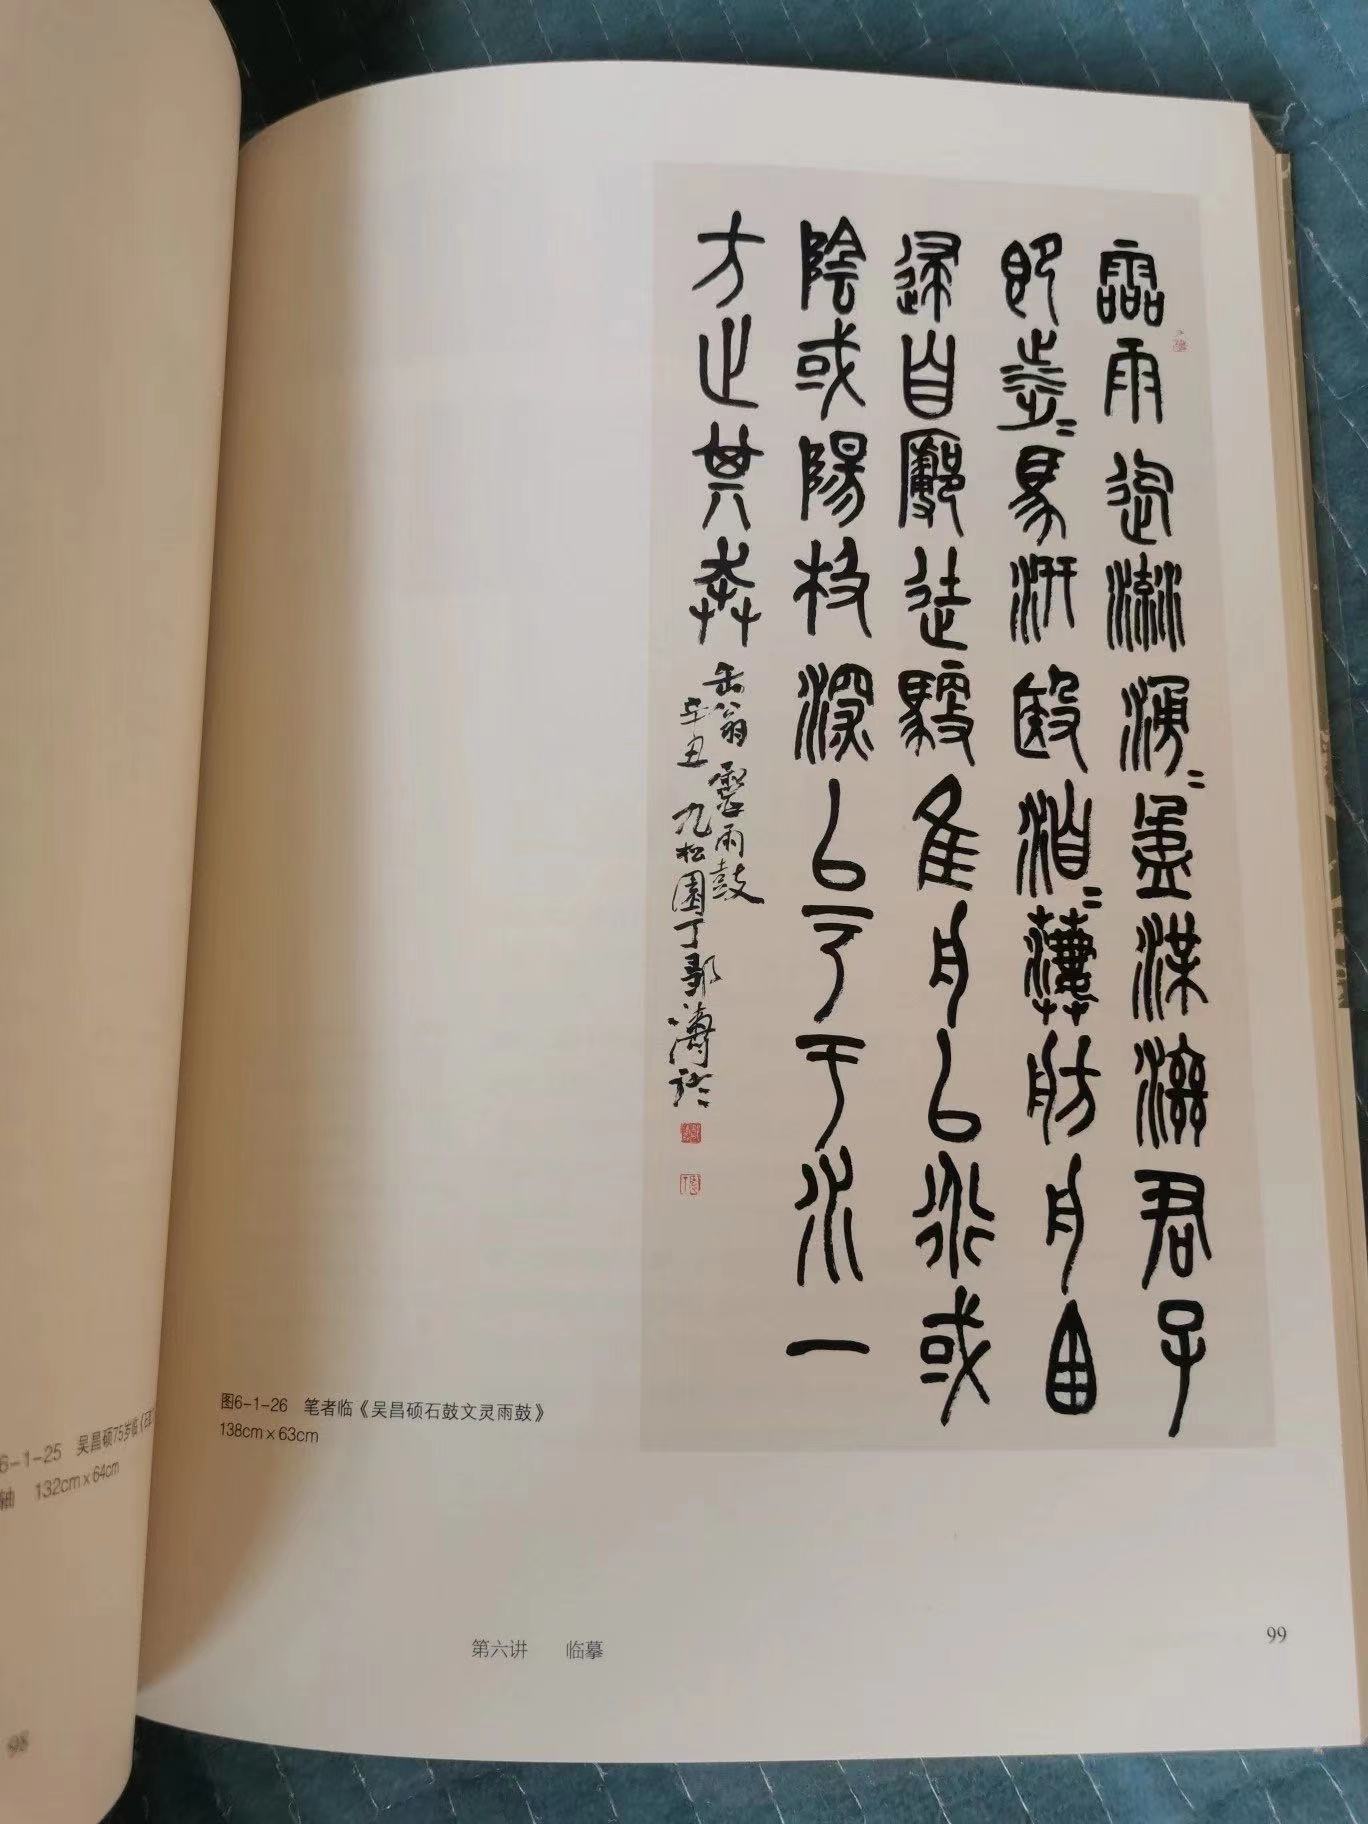 霝雨迄流湧=盈渫濟君子
即涉=馬汧殹洎=萋舫舟囪
逮自廓徒馭隹舟以衍或
陰或陽极深以于水一
方止其奔
缶翁霝雨鼓
辛丑九松園丁鄒濤臨
图6-1-26 笔者临《吴昌硕石鼓文灵雨鼓》
138cm×63cm
第六讲 临摹
99
6-1-25 吴昌硕75岁临《石
轴 132cm×64cm
98